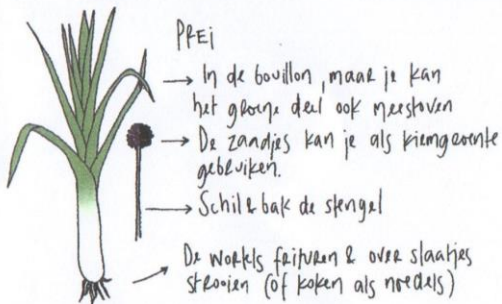 PREi
In de bouillon, maar je kan
het groene deel ook meestoven
De zaadjes kan je als kiemgroente
gebruiken.
Schil & bak de stengel
De wortels frituren & over slaatjes
strooien (of koken als noedels)